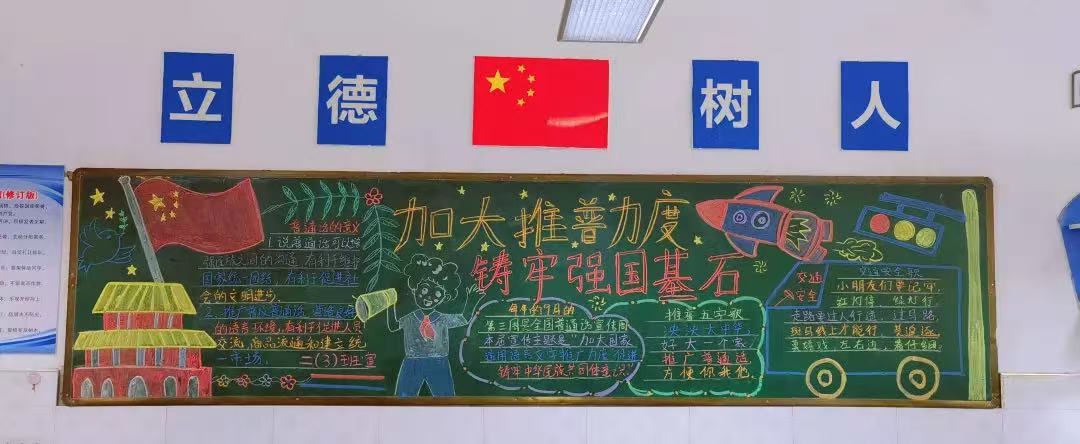 立德树人
(修订版)
加大推普力度
铸牢强国基石
普通话的意义
1.说普通话可以增
强民族之间的沟通,有利于维护
国家统一团结,有利于促进社
会的文明进步。
2、推广普及普通话,营造良好
的语言环境,有利于促进人员
交流,商品流通和建立统
一市场。
二(3)班宣
每年的9月的
第三周是全国普通话宣传周
本届宣传主题是"加大国家
通用语言文字推广力度,促进
铸牢中华民族共同体意识"
推普五字歌
泱泱大中华,
好大一个家
推广普通话
方便你我他.
交通
安全
交通安全歌
小朋友们要记牢,
红灯停 绿灯行
走路要过人行道,过马路,
斑马线上才能行,
左右边,看仔细